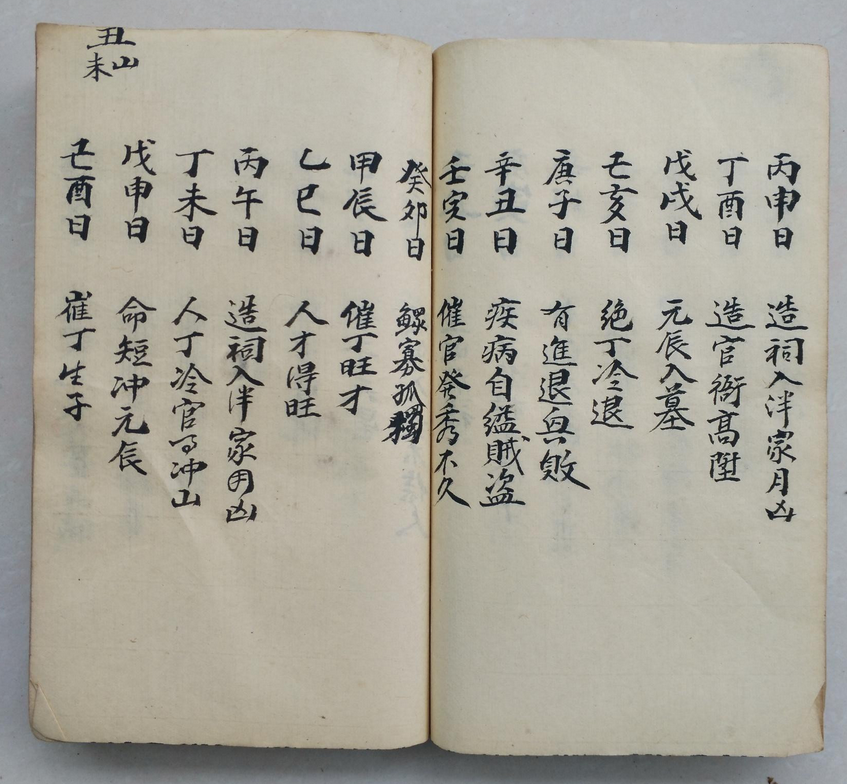 丙申日 造祠入泮家月凶
丁酉日 造官衙高陞
戊戌日 元辰入墓
己亥日 绝丁冷退
庚子日 有進退與敗
辛丑日 疾病自缢贼盗
壬寅日 催官癸秀不久
癸卯日 鳏寡孤獨
甲辰日 催丁旺才
乙巳日 人才得旺
丙午日 造祠入泮家月凶
丁未日 人丁冷官冲山
戊申日 命短冲元辰
己酉日 崔丁生子
丑未山